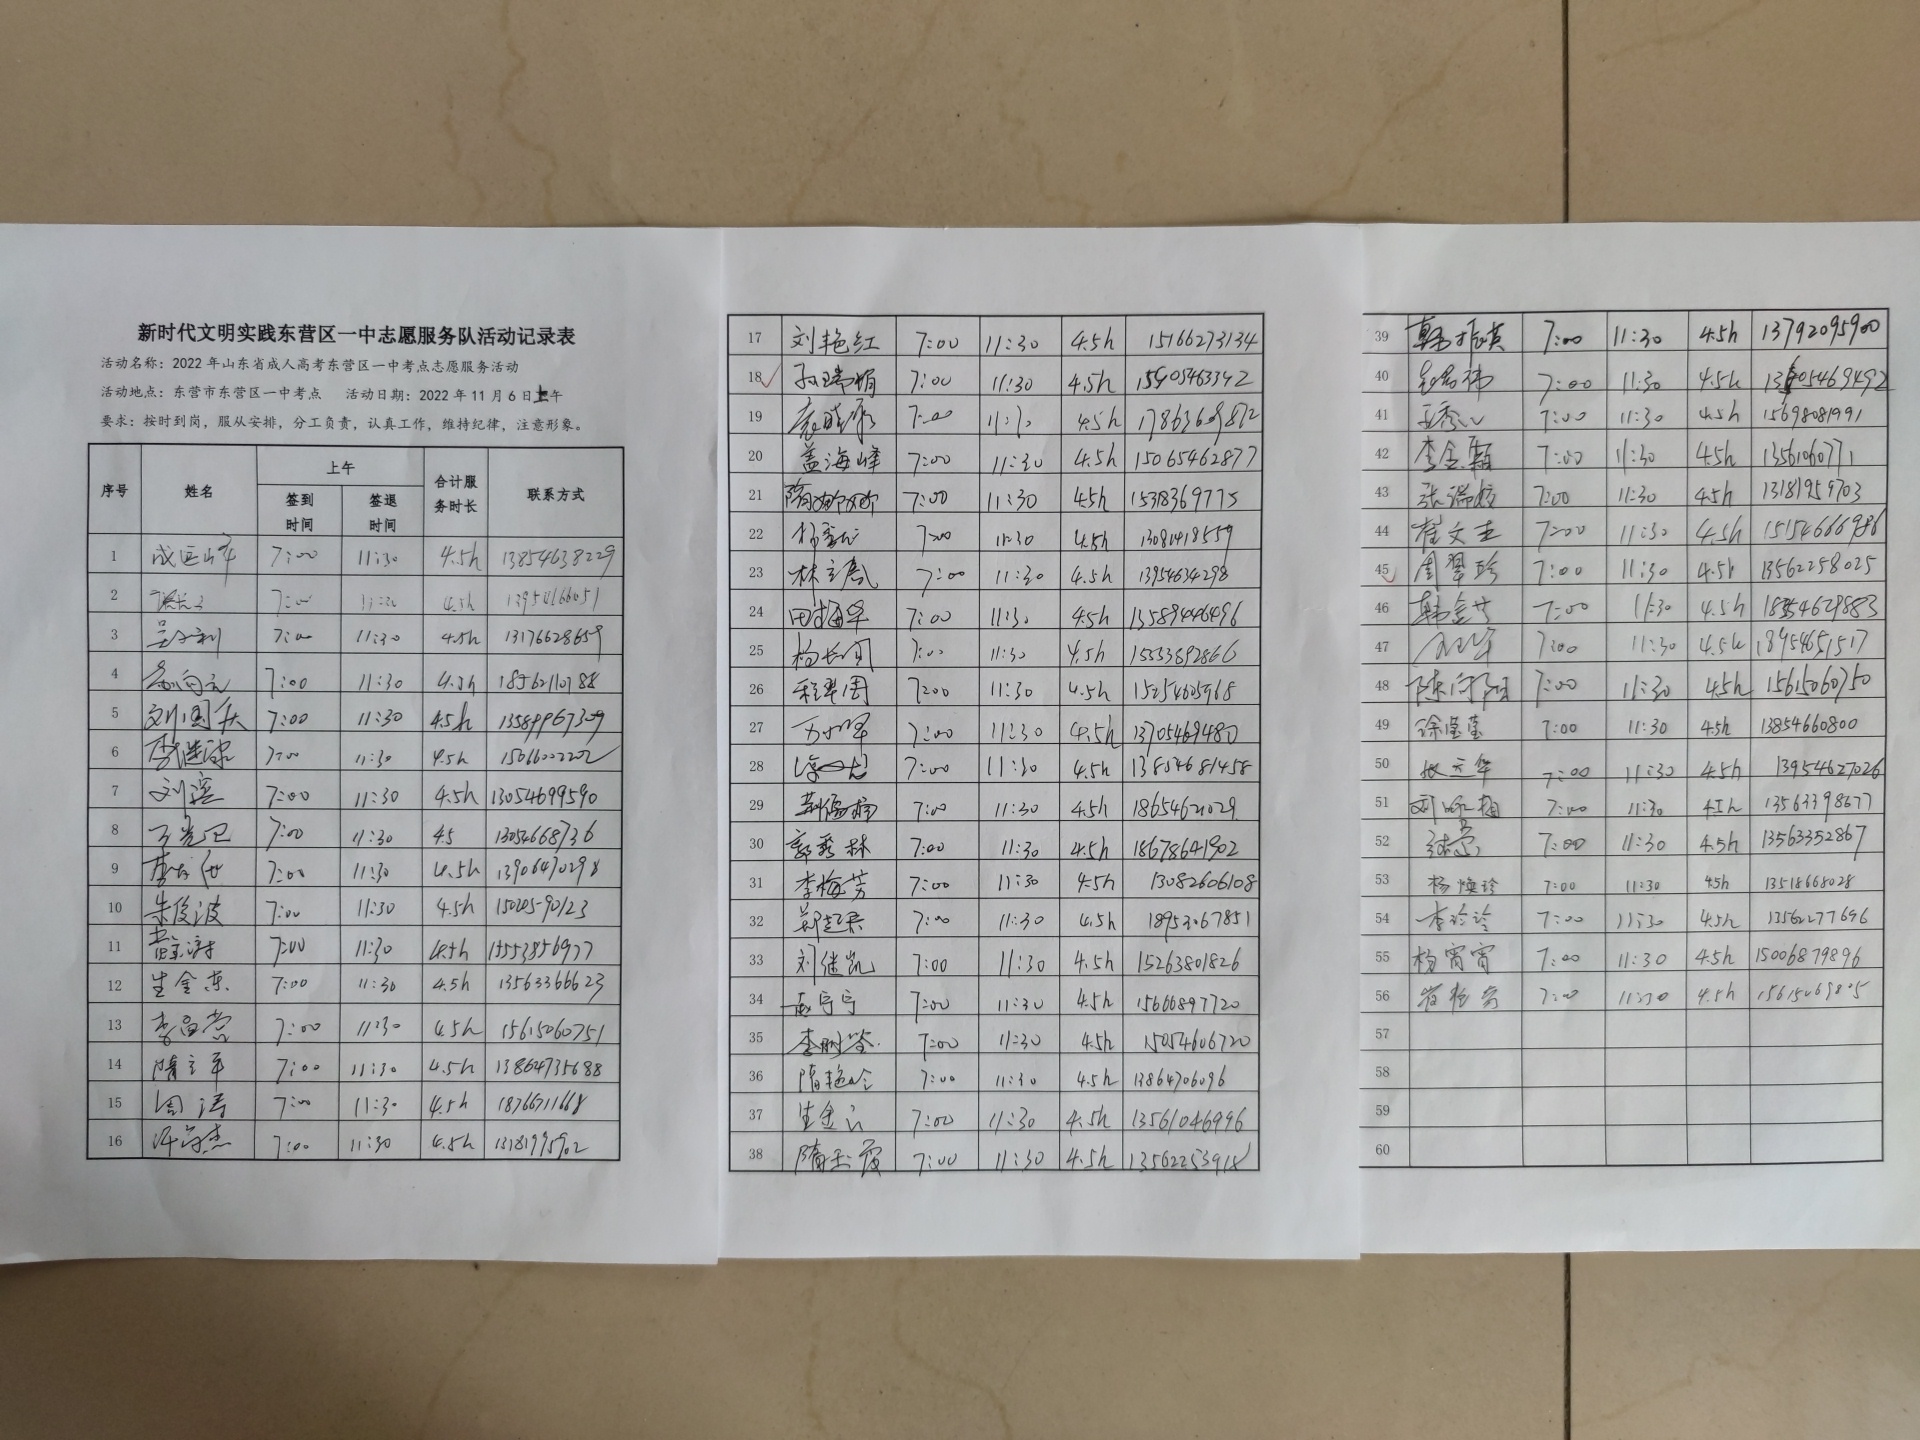 新时代文明实践东营区一中志愿服务队活动记录表
活动名称：2022年山东省成人高考东营区一中考点志愿服务活动
活动地点：东营市东营区一中考点 活动日期：2022年11月6日上午
要求：按时到岗，服从安排，分工负责，认真工作，维持纪律，注意形象。
序号 姓名 上午 合计服务时长 联系方式
签到时间 签退时间
1 7:00 11:30 4.5h 13854638229
2 7:00 11:30 4.5h
3 7:00 11:30 4.5h 13176628659
4 7:00 11:30 4.5h 18562110188
5 刘国兵 7:00 11:30 4.5h 13589967309
6 7:00 11:30 4.5h 15066002202
7 刘滨 7:00 11:30 4.5h 13054699590
8 7:00 11:30 4.5 13054668736
9 7:00 11:30 4.5h 13906470298
10 朱俊波 7:00 11:30 4.5h
11 7:00 11:30 4.5h 15553856977
12 生金东 7:00 11:30 4.5h 13563366623
13 李昌营 7:00 11:30 4.5h 15615060751
14 隋立军 7:00 11:30 4.5h 13864735688
15 周涛 7:00 11:30 4.5h 18766711668
16 7:00 11:30 4.5h 13181995902
17 刘艳红 7:00 11:30 4.5h 15166273134
18 孙瑞娟 7:00 11:30 4.5h 15905463342
19 7:00 11:30 4.5h 17863609872
20 盖海峰 7:00 11:30 4.5h 15065462877
21 7:00 11:30 4.5h 15318369775
22 7:00 11:30 4.5h 13081418559
23 7:00 11:30 4.5h 13954634298
24 田梅早 7:00 11:30 4.5h 13589446496
25 杨长国 7:00 11:30 4.5h 15553892866
26 程翠周 7:00 11:30 4.5h 15254605968
27 7:00 11:30 4.5h 13705469480
28 7:00 11:30 4.5h 13854681458
29 7:00 11:30 4.5h 18654621029
30 郭秀林 7:00 11:30 4.5h 18678641902
31 李梅芳 7:00 11:30 4.5h 13082606108
32 7:00 11:30 4.5h 18953067851
33 刘继凯 7:00 11:30 4.5h 15263801826
34 7:00 11:30 4.5h 15666897720
35 7:00 11:30 4.5h 15054606720
36 隋艳玲 7:00 11:30 4.5h 13864706096
37 生金云 7:00 11:30 4.5h 13561046996
38 隋玉霞 7:00 11:30 4.5h 13562253918
39 韩振英 7:00 11:30 4.5h 13792095900
40 7:00 11:30 4.5h
41 7:00 11:30 4.5h 15698081991
42 李金颖 7:00 11:30 4.5h 13561060771
43 张瑞姣 7:00 11:30 4.5h 13181959703
44 崔文主 7:00 11:30 4.5h 15154666986
45 周翠珍 7:00 11:30 4.5h 13562258025
46 韩金芳 7:00 11:30 4.5h 18354629883
47 7:00 11:30 4.5h 18954651517
48 陈向阳 7:00 11:30 4.5h 15615060750
49 徐莹莹 7:00 11:30 4.5h 13854660800
50 张云华 7:00 11:30 4.5h 13954627026
51 7:00 11:30 4.5h 13563398677
52 7:00 11:30 4.5h 13563352867
53 杨焕珍 7:00 11:30 4.5h 13518668028
54 李玲玲 7:00 11:30 4.5h 13562277696
55 杨宵宵 7:00 11:30 4.5h 15006879896
56 7:00 11:30 4.5h
57
58
59
60